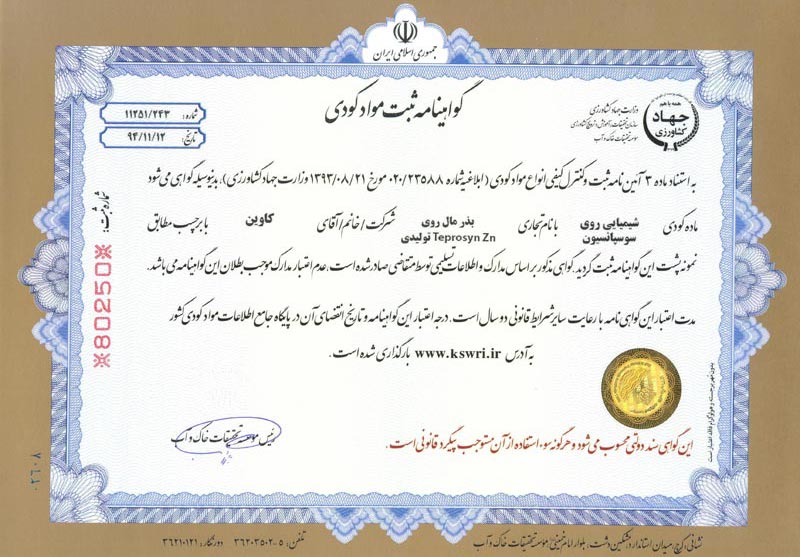 جمهوری اسلامی ایران
گواهینامه ثبت مواد کودی
شماره: ۱۱۲۵۱/۲۴۳
تاریخ: ۹۴/۱۱/۱۲
همه با هم
جهاد
کشاورزی
وزارت جهاد کشاورزی
سازمان تحقیقات، آموزش و ترویج کشاورزی
موسسه تحقیقات خاک و آب
به استناد ماده ۳ آئین نامه ثبت و کنترل کیفی انواع مواد کودی (ابلاغیه شماره ۰۲۰/۲۳۵۸۸ مورخ ۱۳۹۳/۰۸/۲۱ وزارت جهاد کشاورزی)، بدینوسیله گواهی می شود
ماده کودی شیمیایی روی سوسپانسیون با نام تجاری بذر مال روی Teprosyn Zn تولیدی شرکت / خانم / آقای کاوین با برچسب مطابق
نمونه پشت این گواهینامه ثبت گردید. گواهی مذکور بر اساس مدارک و اطلاعات تسلیمی توسط متقاضی صادر شده است، عدم اعتبار مدارک موجب بطلان این گواهینامه می باشد.
مدت اعتبار این گواهی نامه با رعایت سایر شرایط قانونی دو سال است. درجه اعتبار این گواهینامه و تاریخ انقضای آن در پایگاه جامع اطلاعات مواد کودی کشور
به آدرس www.kswri.ir بارگذاری شده است.
شماره ثبت:
※80250※
رئیس موسسه تحقیقات خاک و آب
این گواهی سند دولتی محسوب می شود و هرگونه سوء استفاده از آن مستوجب پیگرد قانونی است.
بدون مهر برجسته و هولوگرام فاقد اعتبار است
۰۲۶۰۸
نشانی: کرج، میدان استاندارد، مشکین دشت، بلوار امام خمینی، موسسه تحقیقات خاک و آب
تلفن: ۵-۳۶۲۰۳۵۰۲ دورنگار: ۳۶۲۱۰۱۲۱